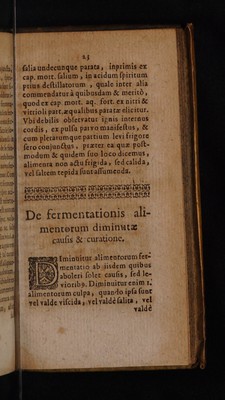 23
salia undecunque parata, inprimis ex
cap. mort. salium, in acidum spiritum
prius destillatorum, quale inter alia
commendatur à quibusdam & meritò,
quod ex cap. mort. aq. fort. ex nitri &
vitrioli part. æqualibus paratæ elicitur.
Vbi debilis observatur ignis internus
cordis, ex pulsu parvo manifestus, &
cum plerumque partium levi frigore
sero conjunctus, præter ea quæ post-
modum & quidem suo loco dicemus,
alimenta non actu frigida, sed calida,
vel saltem tepida sunt assumenda.
De fermentationis ali-
mentorum diminutæ
causis & curatione.
DIminuitur alimentorum fer-
mentatio ab iisdem quibus
aboleri solet causis, sed le-
vioribq. Diminuitur enim 1.
alimentorum culpa, quando ipsa sunt
vel valde viscida, vel valdè salita, vel
valdè